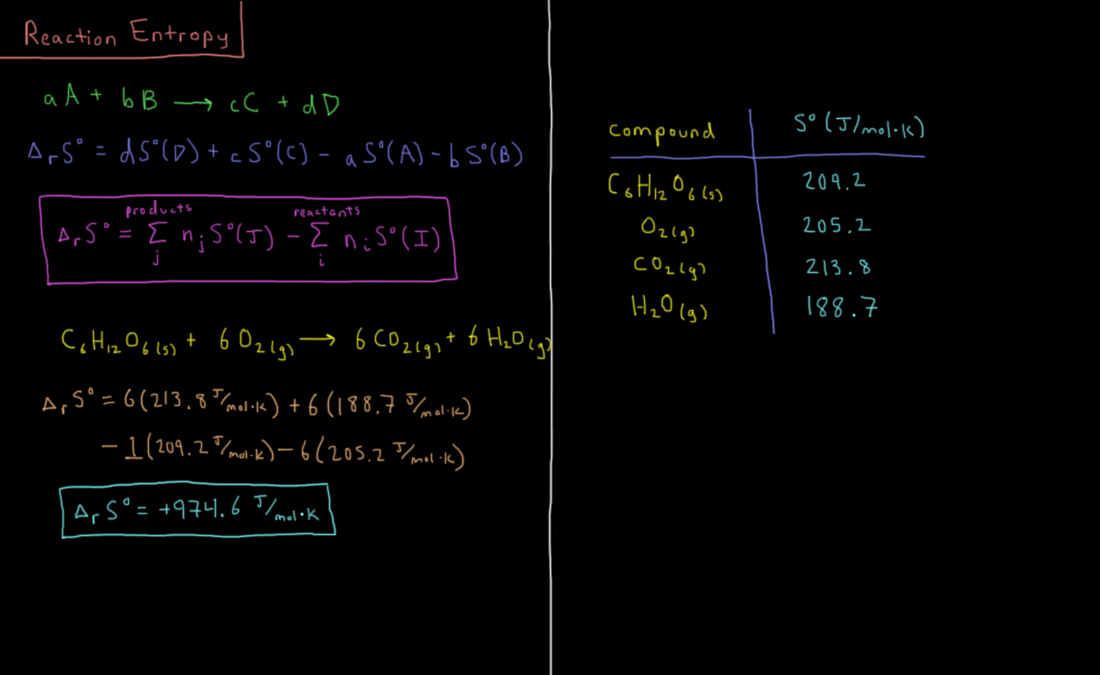 Reaction Entropy
aA + bB → cC + dD
ΔᵣS° = dS°(D) + cS°(C) − aS°(A) − bS°(B)
products reactants
ΔᵣS° = Σ nⱼS°(J) − Σ nᵢS°(I)
j i
C₆H₁₂O₆(s) + 6O₂(g) → 6CO₂(g) + 6H₂O(g)
ΔᵣS° = 6(213.8 J/mol·K) + 6(188.7 J/mol·K)
− 1(209.2 J/mol·K) − 6(205.2 J/mol·K)
ΔᵣS° = +974.6 J/mol·K
compound S° (J/mol·K)
C₆H₁₂O₆(s) 209.2
O₂(g) 205.2
CO₂(g) 213.8
H₂O(g) 188.7